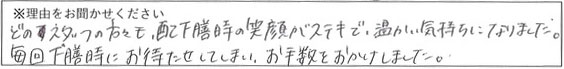 ※理由をお聞かせください
どのスタッフの方々も、配下膳時の笑顔がステキで、温かい気持ちになりました。
毎回下膳時にお待たせしてしまい、お手数をおかけしました。